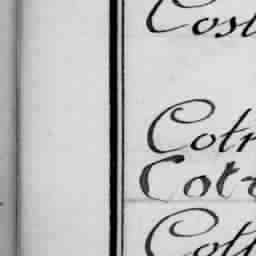 Cost
Cotr
Cotr
Cott